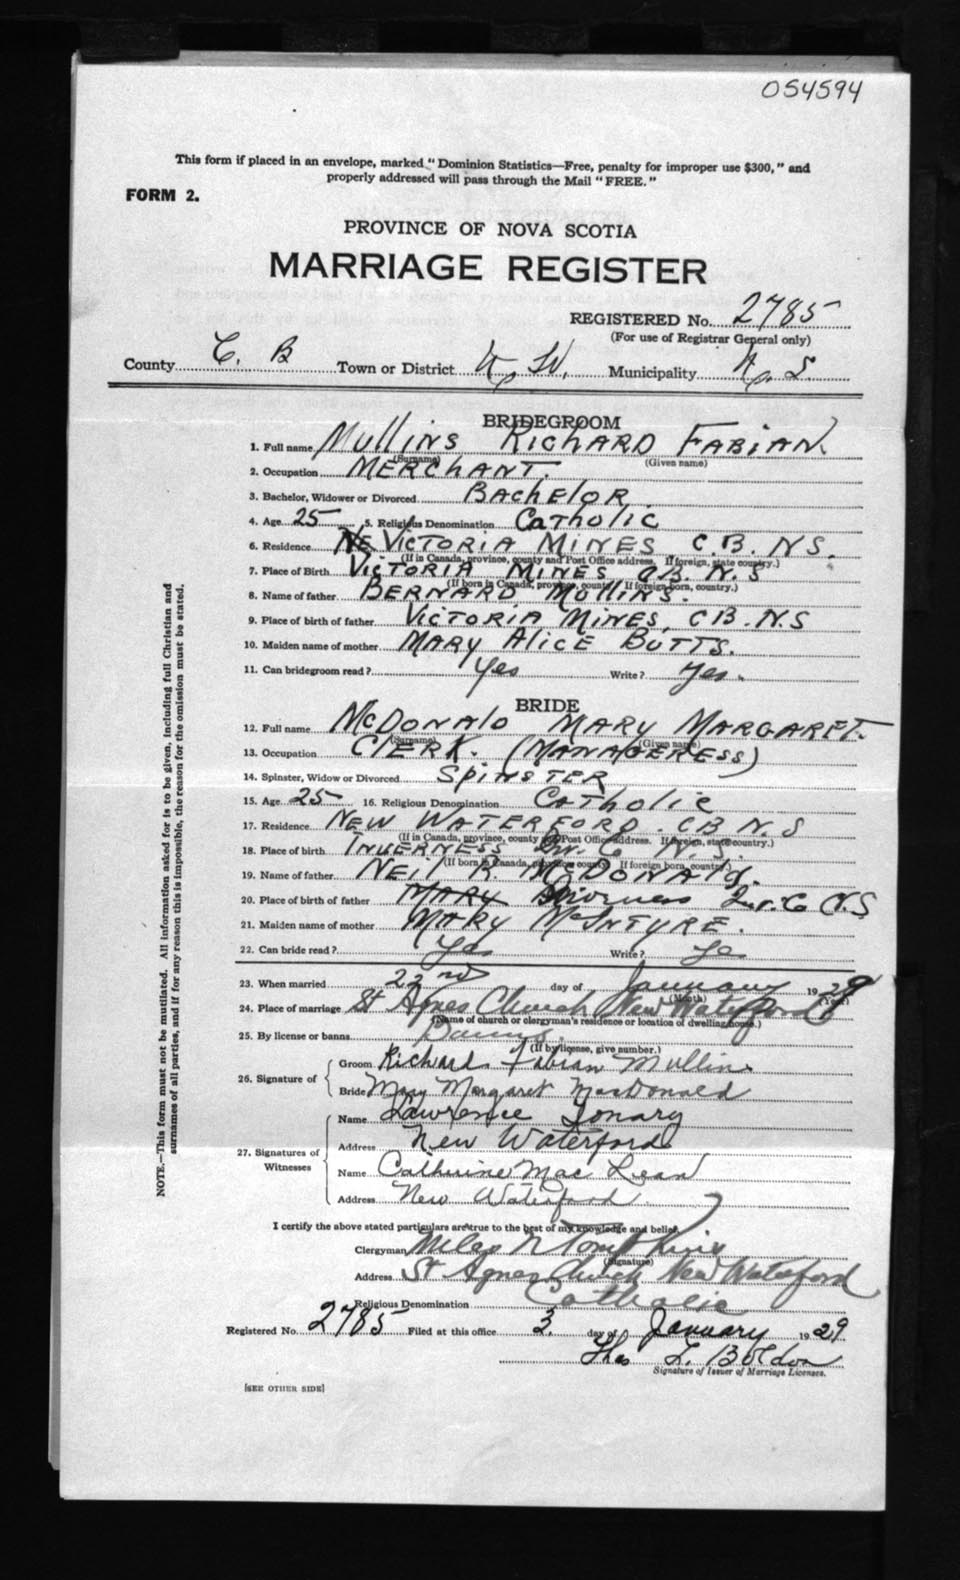 054594
This form if placed in an envelope, marked "Dominion Statistics—Free, penalty for improper use $300," and
properly addressed will pass through the Mail "FREE."
FORM 2.
PROVINCE OF NOVA SCOTIA
MARRIAGE REGISTER
REGISTERED No. 2785
(For use of Registrar General only)
County C. B Town or District Municipality
BRIDEGROOM
1. Full name Mullins Richard Fabian
(Surname) (Given name)
2. Occupation Merchant.
3. Bachelor, Widower or Divorced Bachelor
4. Age 25 5. Religious Denomination Catholic
6. Residence Victoria Mines C.B. N.S.
(If in Canada, province, county and Post Office address. If foreign, state country.)
7. Place of Birth Victoria Mines C.B. N.S
(If born in Canada, province, county. If foreign born, country.)
8. Name of father Bernard Mullins.
9. Place of birth of father Victoria Mines, CB. N.S
10. Maiden name of mother Mary Alice Butts.
11. Can bridegroom read? Yes Write? Yes.
BRIDE
12. Full name McDonald Mary Margaret.
(Surname) (Given name)
13. Occupation Clerk. (Manageress)
14. Spinster, Widow or Divorced Spinster
15. Age 25 16. Religious Denomination Catholic
17. Residence New Waterford. CB N.S
(If in Canada, province, county and Post Office address. If foreign, state country.)
18. Place of birth Inverness Inv. Co N.S.
(If born in Canada, province county. If foreign born, country.)
19. Name of father Neil R. McDonald.
20. Place of birth of father Mary Inv. Co N.S
21. Maiden name of mother Mary McIntyre.
22. Can bride read? Yes Write? Yes
23. When married 22nd day of January 1929
(Month) (Year)
24. Place of marriage St Agnes Church New Waterford
(Name of church or clergyman's residence or location of dwelling house.)
25. By license or banns Banns.
(If by license, give number.)
26. Signature of Groom Richard Fabian Mullins
Bride Mary Margaret MacDonald
27. Signatures of Witnesses Name Lawrence
Address New Waterford
Name Catherine Mac Lean
Address New Waterford
I certify the above stated particulars are true to the best of my knowledge and belief.
Clergyman Miles N Tompkins
(Signature)
Address St Agnes Church New Waterford
Religious Denomination Catholic
Registered No. 2785 Filed at this office 3. day of January 1929
Thos L. Boldon
Signature of Issuer of Marriage Licenses.
[SEE OTHER SIDE]
NOTE.—This form must not be mutilated. All information asked for is to be given, including full Christian and
surnames of all parties, and if for any reason this is impossible, the reason for the omission must be stated.